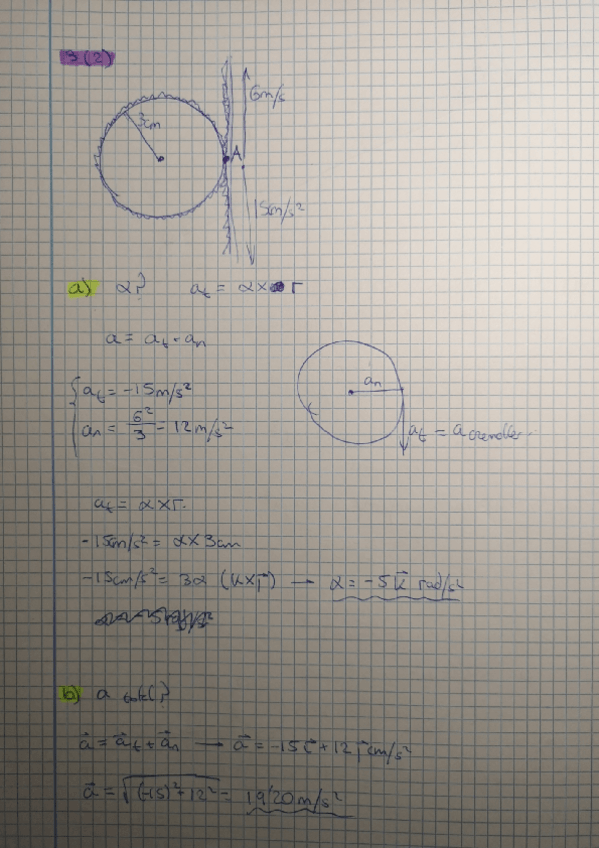 3(2)
3cm
6m/s
A
15m/s²
a) α? a_t = α × r
a = a_t · a_n
{ a_t = -15m/s²
a_n = 6²/3 = 12m/s²
a_n
a_t = a
a_t = α × r.
-15m/s² = α × 3cm
-15cm/s² = 3α (k × j⃗) → α = -5k⃗ rad/s²
b) a
a⃗ = a⃗_t + a⃗_n → a⃗ = -15i⃗ + 12j⃗ cm/s²
a⃗ = √((-15)² + 12²) = 19'20m/s²